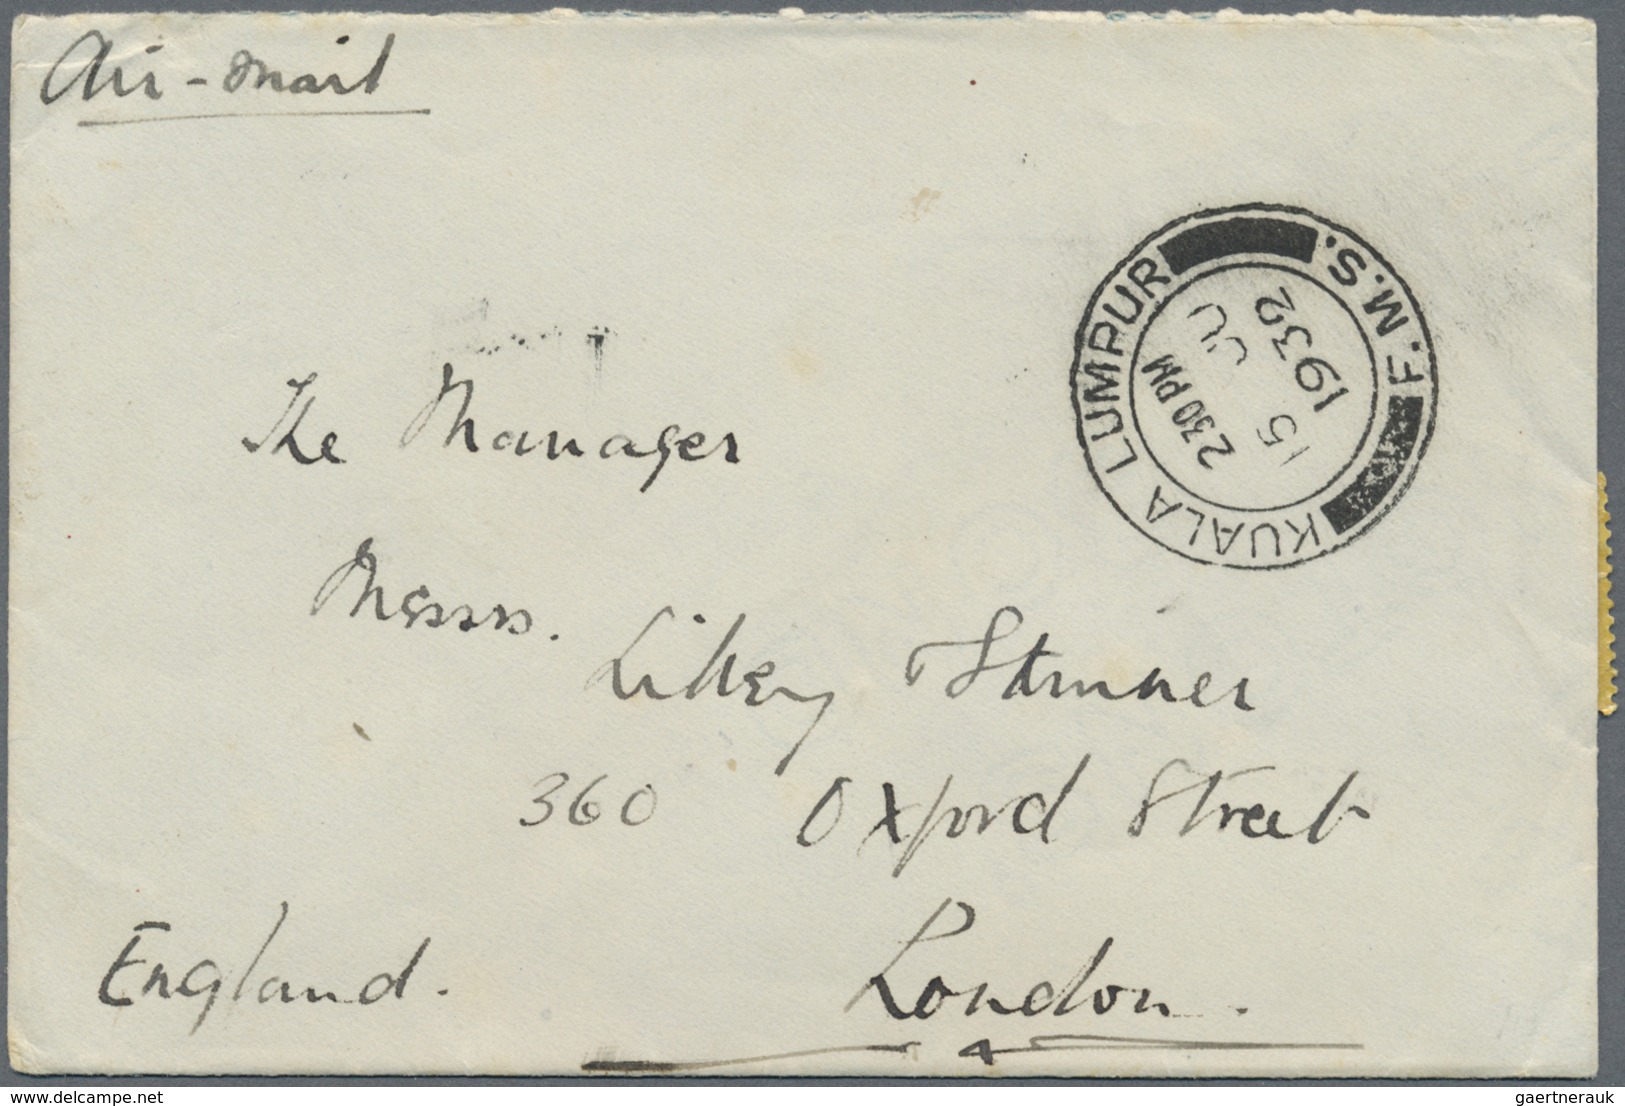 Air-Mail
KUALA LUMPUR
F.M.S.
2 30 PM
15 JU
1932
The Manager
Messrs.
Lilley & Skinner
360 Oxford Street
London.
England.
delcampe.net
gaertnerauk